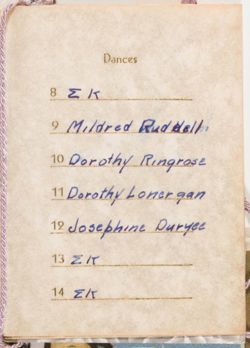 Dances
8 ΣK
9 Mildred Ruddell
10 Dorothy Ringrose
11 Dorothy Lonergan
12 Josephine Duryee
13 ΣK
14 ΣK